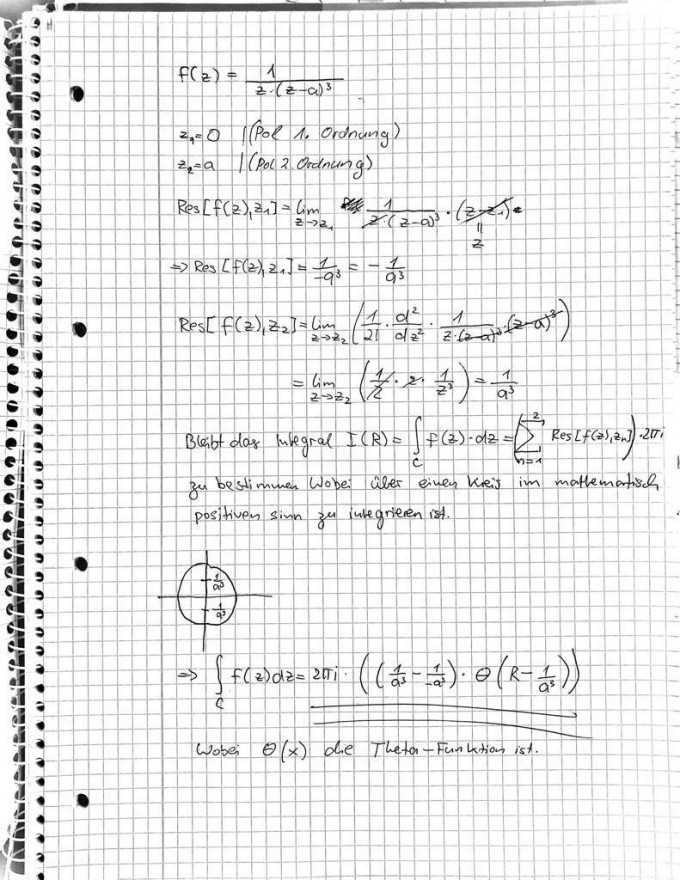 f(z) = 1/(z·(z-a)³)
z₁=0 |(Pol 1. Ordnung)
z₂=a |(Pol 2. Ordnung)
Res[f(z),z₁] = lim z→z₁ 1/(z·(z-a)³) · (z-z₁)
= z
=> Res[f(z),z₁] = 1/-a³ = - 1/a³
Res[f(z),z₂] = lim z→z₂ (1/2! · d²/dz² · 1/(z·(z-a)³) · (z-a)³)
= lim z→z₂ (1/2 · 2 · 1/z³) = 1/a³
Bleibt das Integral I(R) = ∫C f(z)·dz = (∑ n=1 2 Res[f(z),zn])·2πi
zu bestimmen Wobei über einen Kreis im mathematisch
positiven sinn zu integrieren ist.
1/a³
-1/a³
=> ∫C f(z)dz = 2πi · ((1/a³ - 1/-a³) · Θ(R - 1/a³))
Wobei Θ(x) die Theta-Funktion ist.